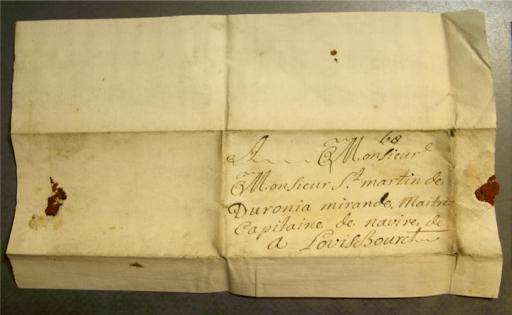 68
A Monsieur
Monsieur St. martin de
Duronia mirande, Maitre
Capitaine de navire, de
a LovisBourc